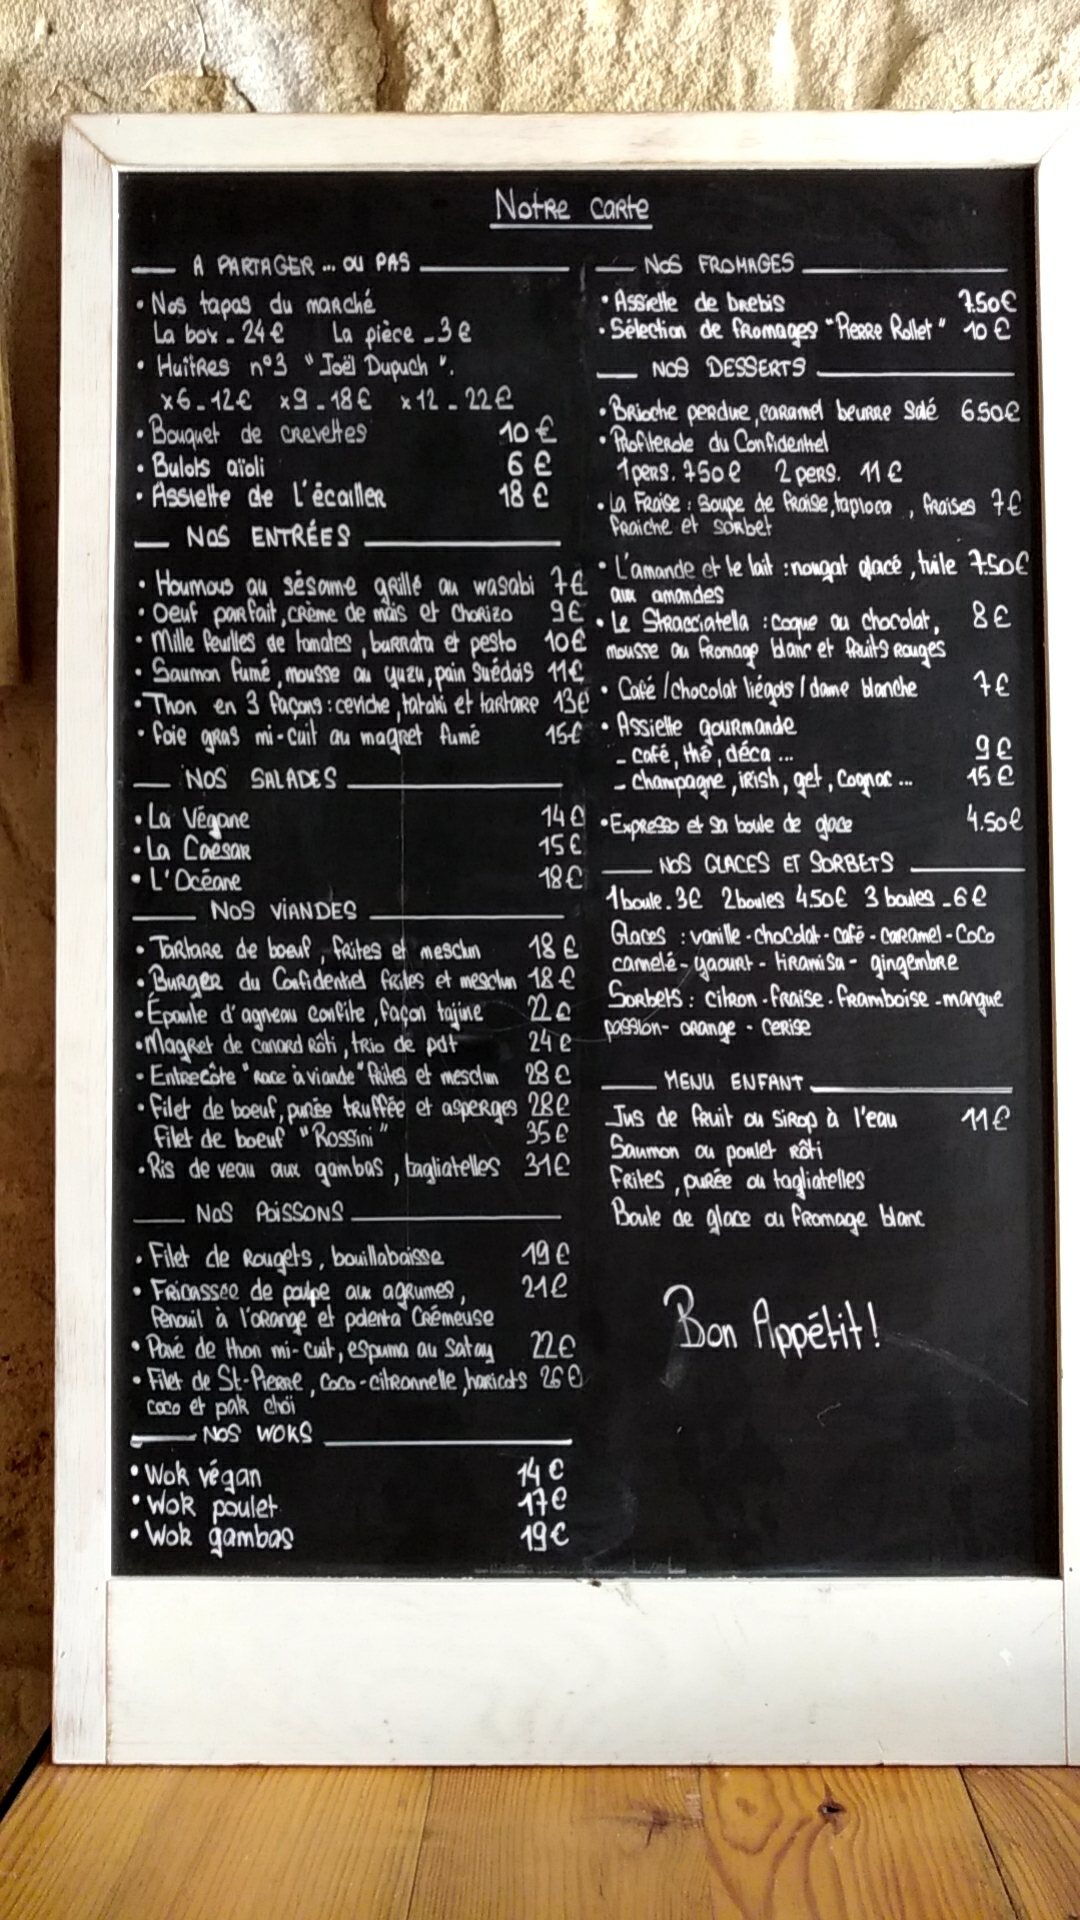 Notre carte
A PARTAGER ... OU PAS
• Nos tapas du marché
La box - 24 € La pièce - 3 €
• Huitres n°3 "Joël Dupuch".
x6 - 12€ x9 - 18€ x12 - 22€
• Bouquet de crevettes 10 €
• Bulots aïoli 6 €
• Assiette de l'écailler 18 €
NOS ENTRÉES
• Houmous au sésame grillé au wasabi 7€
• Oeuf parfait, crème de maïs et chorizo 9€
• Mille feuilles de tomates, burrata et pesto 10€
• Saumon fumé, mousse au yuzu, pain suédois 11€
• Thon en 3 façons : ceviche, tataki et tartare 13€
• foie gras mi-cuit au magret fumé 15€
NOS SALADES
• La Végane 14€
• La Caesar 15€
• L'Océane 18€
NOS VIANDES
• Tartare de boeuf, frites et mesclun 18 €
• Burger du Confidentiel frites et mesclun 18 €
• Épaule d'agneau confite, façon tajine 22 €
• Magret de canard rôti, trio de pdt 24 €
• Entrecôte "race à viande" frites et mesclun 28 €
• Filet de boeuf, purée truffée et asperges 28€
Filet de boeuf "Rossini" 35€
• Ris de veau aux gambas, tagliatelles 31€
NOS POISSONS
• Filet de Rougets, bouillabaisse 19€
• Fricassee de poulpe aux agrumes, 21€
fenouil à l'orange et polenta crémeuse
• Pavé de thon mi-cuit, espuma au Satay 22€
• Filet de St-Pierre, coco-citronnelle, haricots 26€
coco et pak choï
NOS WOKS
• Wok végan 14€
• Wok poulet 17€
• Wok gambas 19€
NOS FROMAGES
• Assiette de brebis 7.50€
• Sélection de fromages "Pierre Rollet" 10 €
NOS DESSERTS
• Brioche perdue, caramel beurre salé 6.50€
• Profiterole du Confidentiel
1 pers. 7.50€ 2 pers. 11 €
• La Fraise : soupe de fraise, tapioca, fraises 7€
fraiche et sorbet
• L'amande et le lait : nougat glacé, tuile 7.50€
aux amandes
• Le Stracciatella : coque au chocolat, 8€
mousse au fromage blanc et fruits rouges
• Café / chocolat liégois / dame blanche 7€
• Assiette gourmande
- café, thé, déca ... 9€
- champagne, irish, get, cognac ... 15 €
• Expresso et sa boule de glace 4.50€
NOS GLACES ET SORBETS
1 boule . 3€ 2 boules 4.50€ 3 boules - 6€
Glaces : vanille - chocolat - café - caramel - coco
camelé - yaourt - tiramisa - gingembre
Sorbets : citron - fraise - framboise - mangue
passion - orange - cerise
MENU ENFANT
Jus de fruit ou sirop à l'eau 11€
Saumon ou poulet rôti
Frites, purée ou tagliatelles
Boule de glace ou fromage blanc
Bon Appétit!